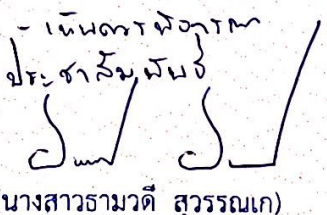 เห็นควรพิจารณา
ประชาสัมพันธ์
(นางสาวธามวดี สุวรรณเก)